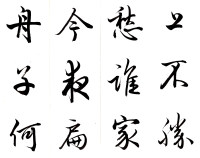 上不勝
愁誰家
今夜扁
舟子何